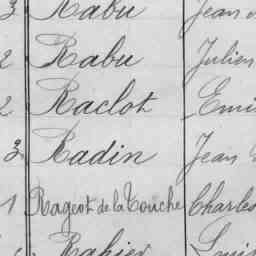 3 Rabu Jean
2 Rabu Julien
2 Raclot Emi
3 Radin Jean
1 Rageot de la Touche Charles
Rahier Loui